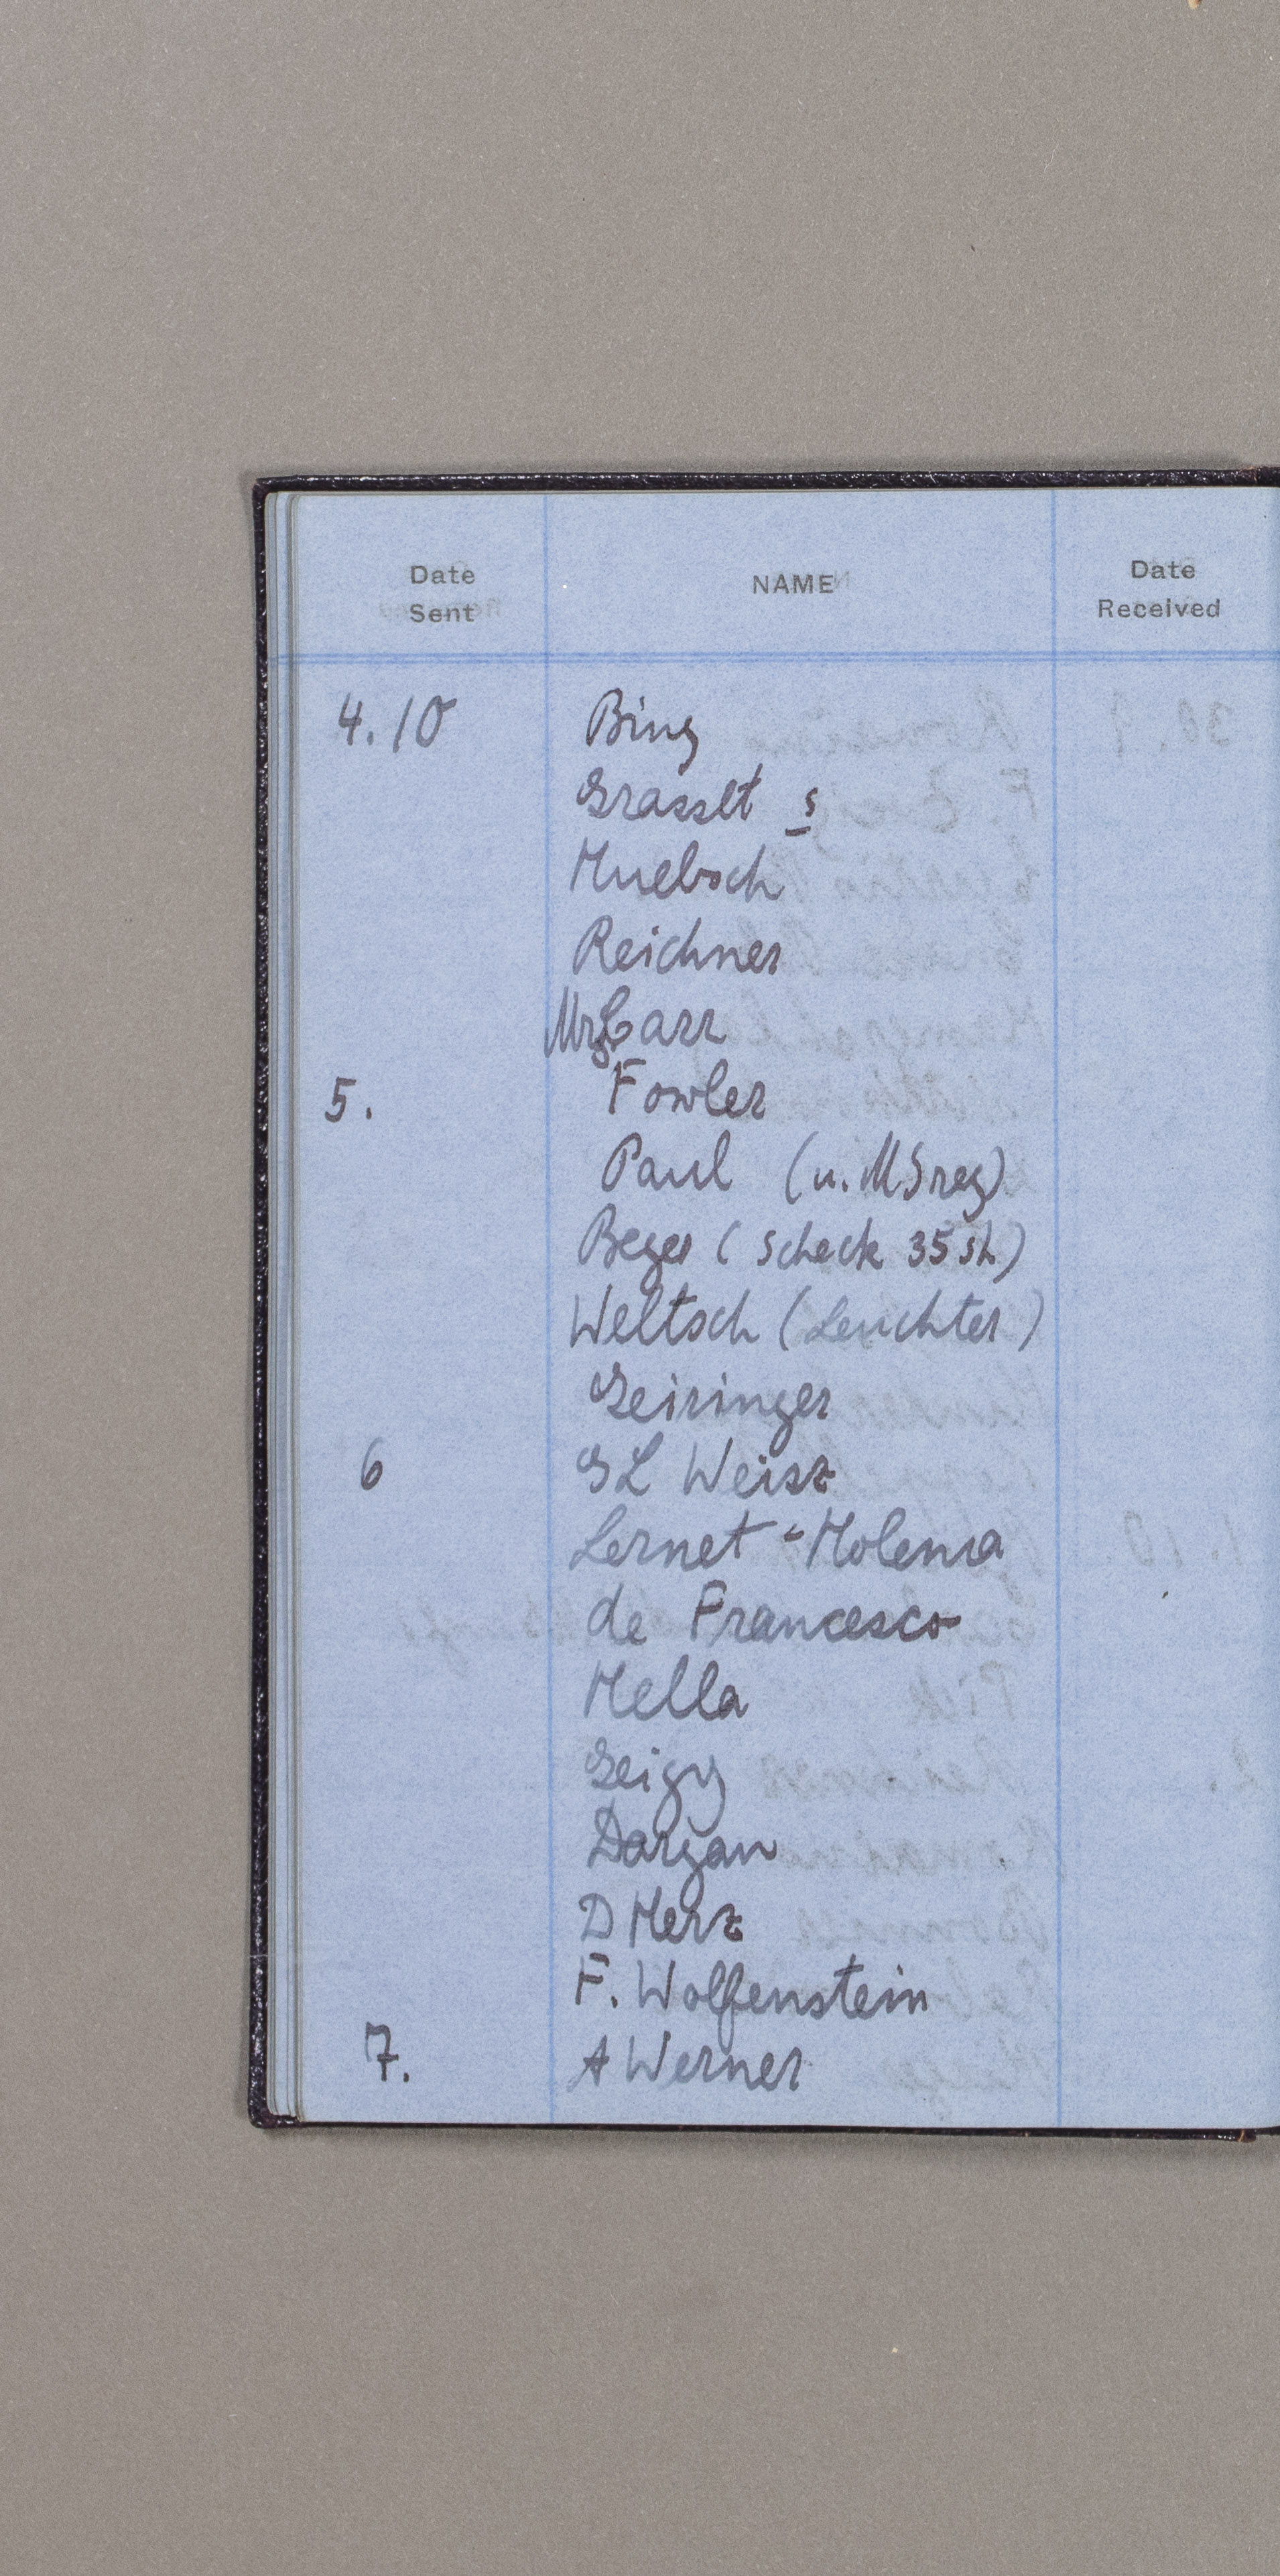 Date Sent NAME Date Received
4.10 Bing
Grasset s
Huebsch
Reichner
Mrs Carr
5. Fowler
Paul (u. MS reg)
Beger (Scheck 35 sh)
Weltsch (Leuchter)
Geiringer
6 G L Weisz
Lernet-Holenia
de Francesco
Hella
Geigy
Dargan
D Herz
F. Wolfenstein
7. A Werner